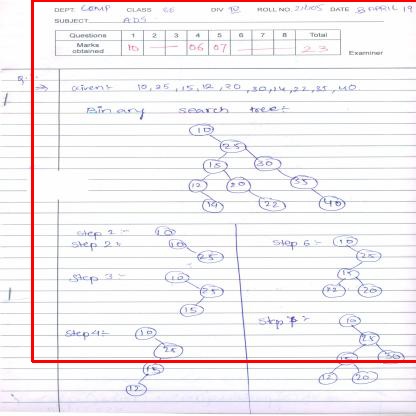 DEPT. COMP CLASS SE DIV B ROLL NO. DATE 8 APRIL 19
SUBJECT ADS
Questions 1 2 3 4 5 6 7 8 Total
Marks obtained 10 — — 06 07 23
Examiner
Given:- 10, 25, 15, 12, 20, 30, 14, 22, 35, 40
Binary search tree:-
10
25
15 30
12 20 35
14 22 40
10
Step 2:- 10
25
Step 3:- 10
25
15
Step 4:- 10
25
15
12
Step 6:- 10
25
15
12 20
10
25
15 30
12 20